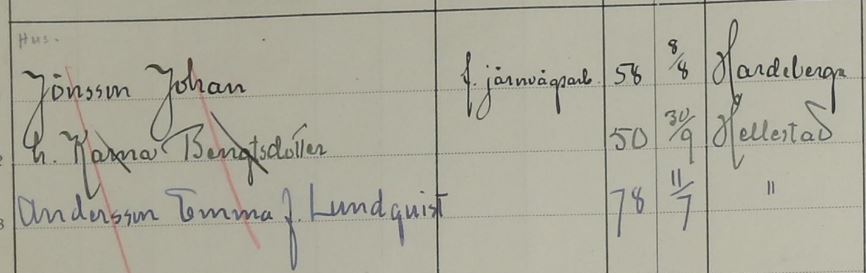 Hus.
Jönsson Johan f. järnvägsarb. 58 8/8 Hardeberga
h. Karna Bengtsdotter 50 30/9 Hellestad
3 Andersson Emma f. Lundquist 78 11/7 "